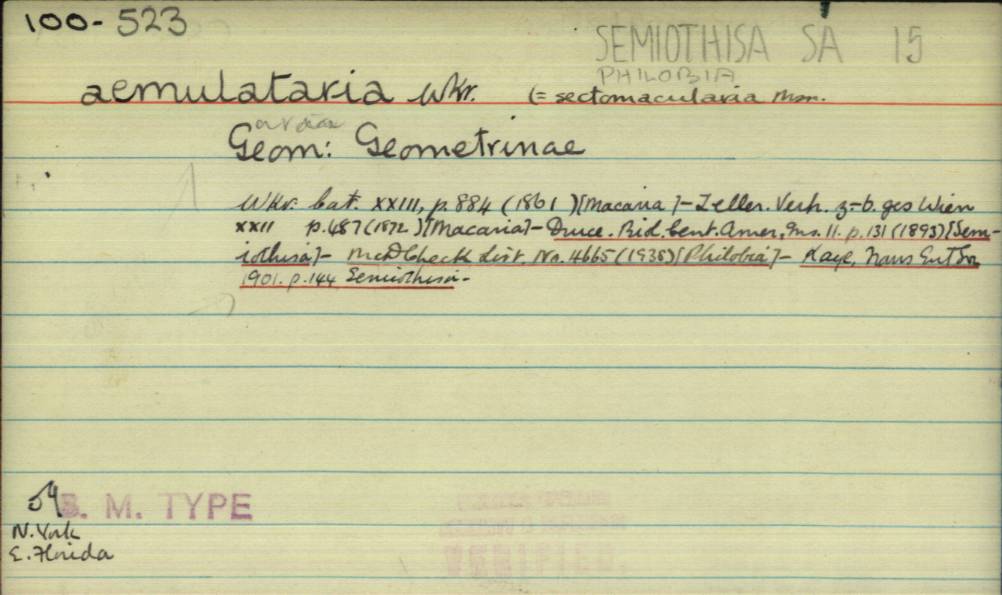 100-523
SEMIOTHISA SA 15
PHILOBIA
aemulataria Wkr. (= sectomacularia Morr.
Geom: Geometrinae
Wkr. Cat. XXIII, p. 884 (1861) [Macaria] - Zeller. Verh. z-b. ges Wien
XXII p. 487 (1872) [Macaria] - Druce. Biol. Cent. Amer, Ins. II. p. 131 (1893) [Sem-
iothisa] - McD Check List. No. 4665 (1938) [Philobia] - Kaye, Trans Ent Soc
1901. p. 144 Semiothisa -
B. M. TYPE
N. York
E. Florida
VERIFIED.